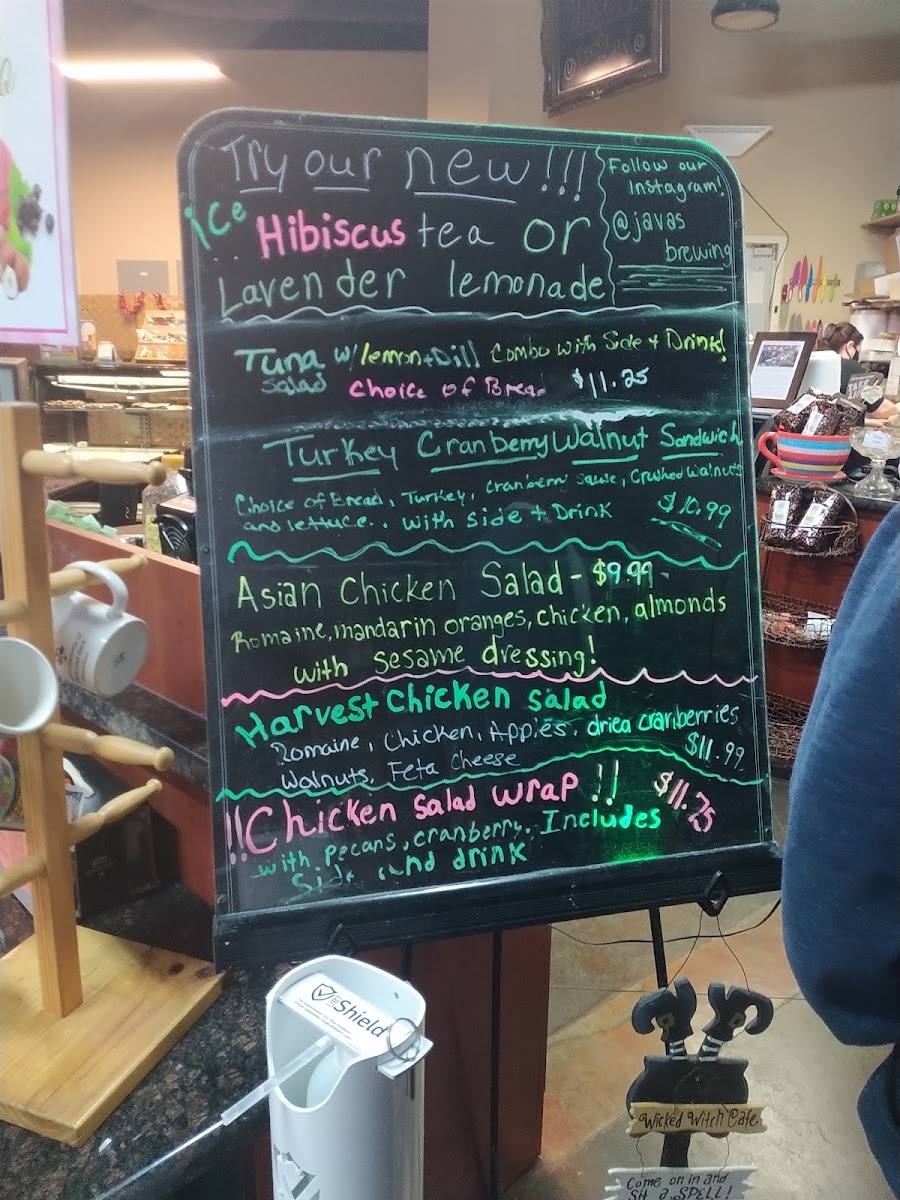 Try our new!!!
ice Hibiscus tea or
Lavender lemonade
Follow our
Instagram!
@javas
brewing
Tuna w/lemon+Dill Combo with Side + Drink!
Salad Choice of Bread $11.25
Turkey Cranberry Walnut Sandwich
Choice of Bread, Turkey, Cranberry Sause, Crushed Walnuts
and lettuce.. with Side + Drink $10.99
Asian Chicken Salad - $9.99
Romaine, mandarin oranges, chicken, almonds
with sesame dressing!
Harvest Chicken Salad
Romaine, Chicken, Apples, dried cranberries
Walnuts, Feta Cheese $11.99
!!Chicken salad wrap!! $11.75
with pecans, cranberry. Includes
Side and drink
Shield
Wicked Witch Cafe
Come on in and
Sit a SPELL!